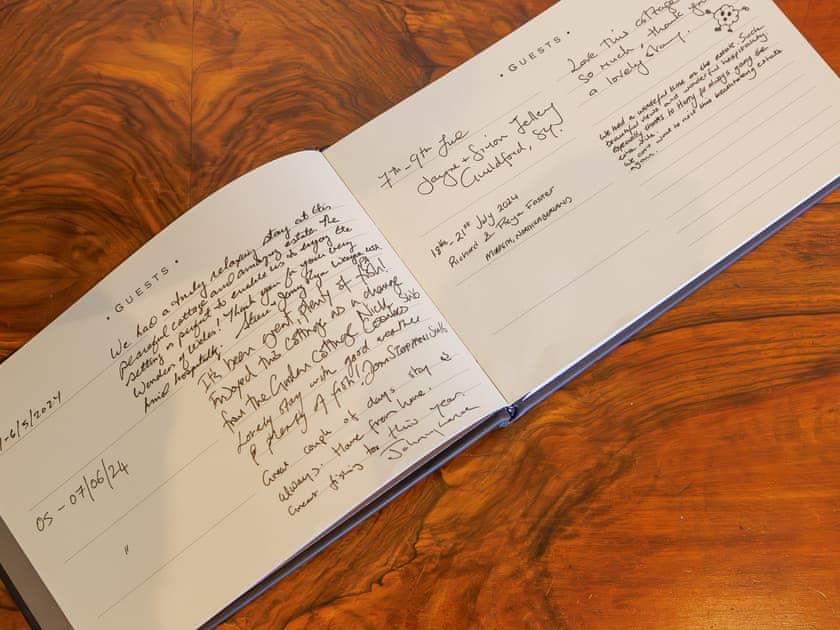 • GUESTS •
-6/5/2024
We had a truly relaxing stay at this
peaceful cottage and amazing estate. The
setting is perfect to enable us to enjoy the
Wonders of Wales! Thank you for your very
kind hospitality.
It's been great, plenty of fish!
Enjoyed this cottage as a change
from the Garden Cottage. Nick
Lovely stay with good weather
& plenty of fish!
05 - 07/06/24
Great couple of days stay
always. Home from home.
Great fishing too this year.
"
• GUESTS •
7th - 9th
Jayne + Simon
Guildford, Sy.
Love this cottage
so much, thank you
a lovely stay.
18th - 21st July 2024
Richard & Freya Foster
MORPETH, NORTHUMBERLAND
We had a wonderful time on the estate. Such
beautiful views and wonderful hospitality.
Especially thanks to Harry for always going the
extra mile.
We can't wait to visit this breathtaking estate
again.